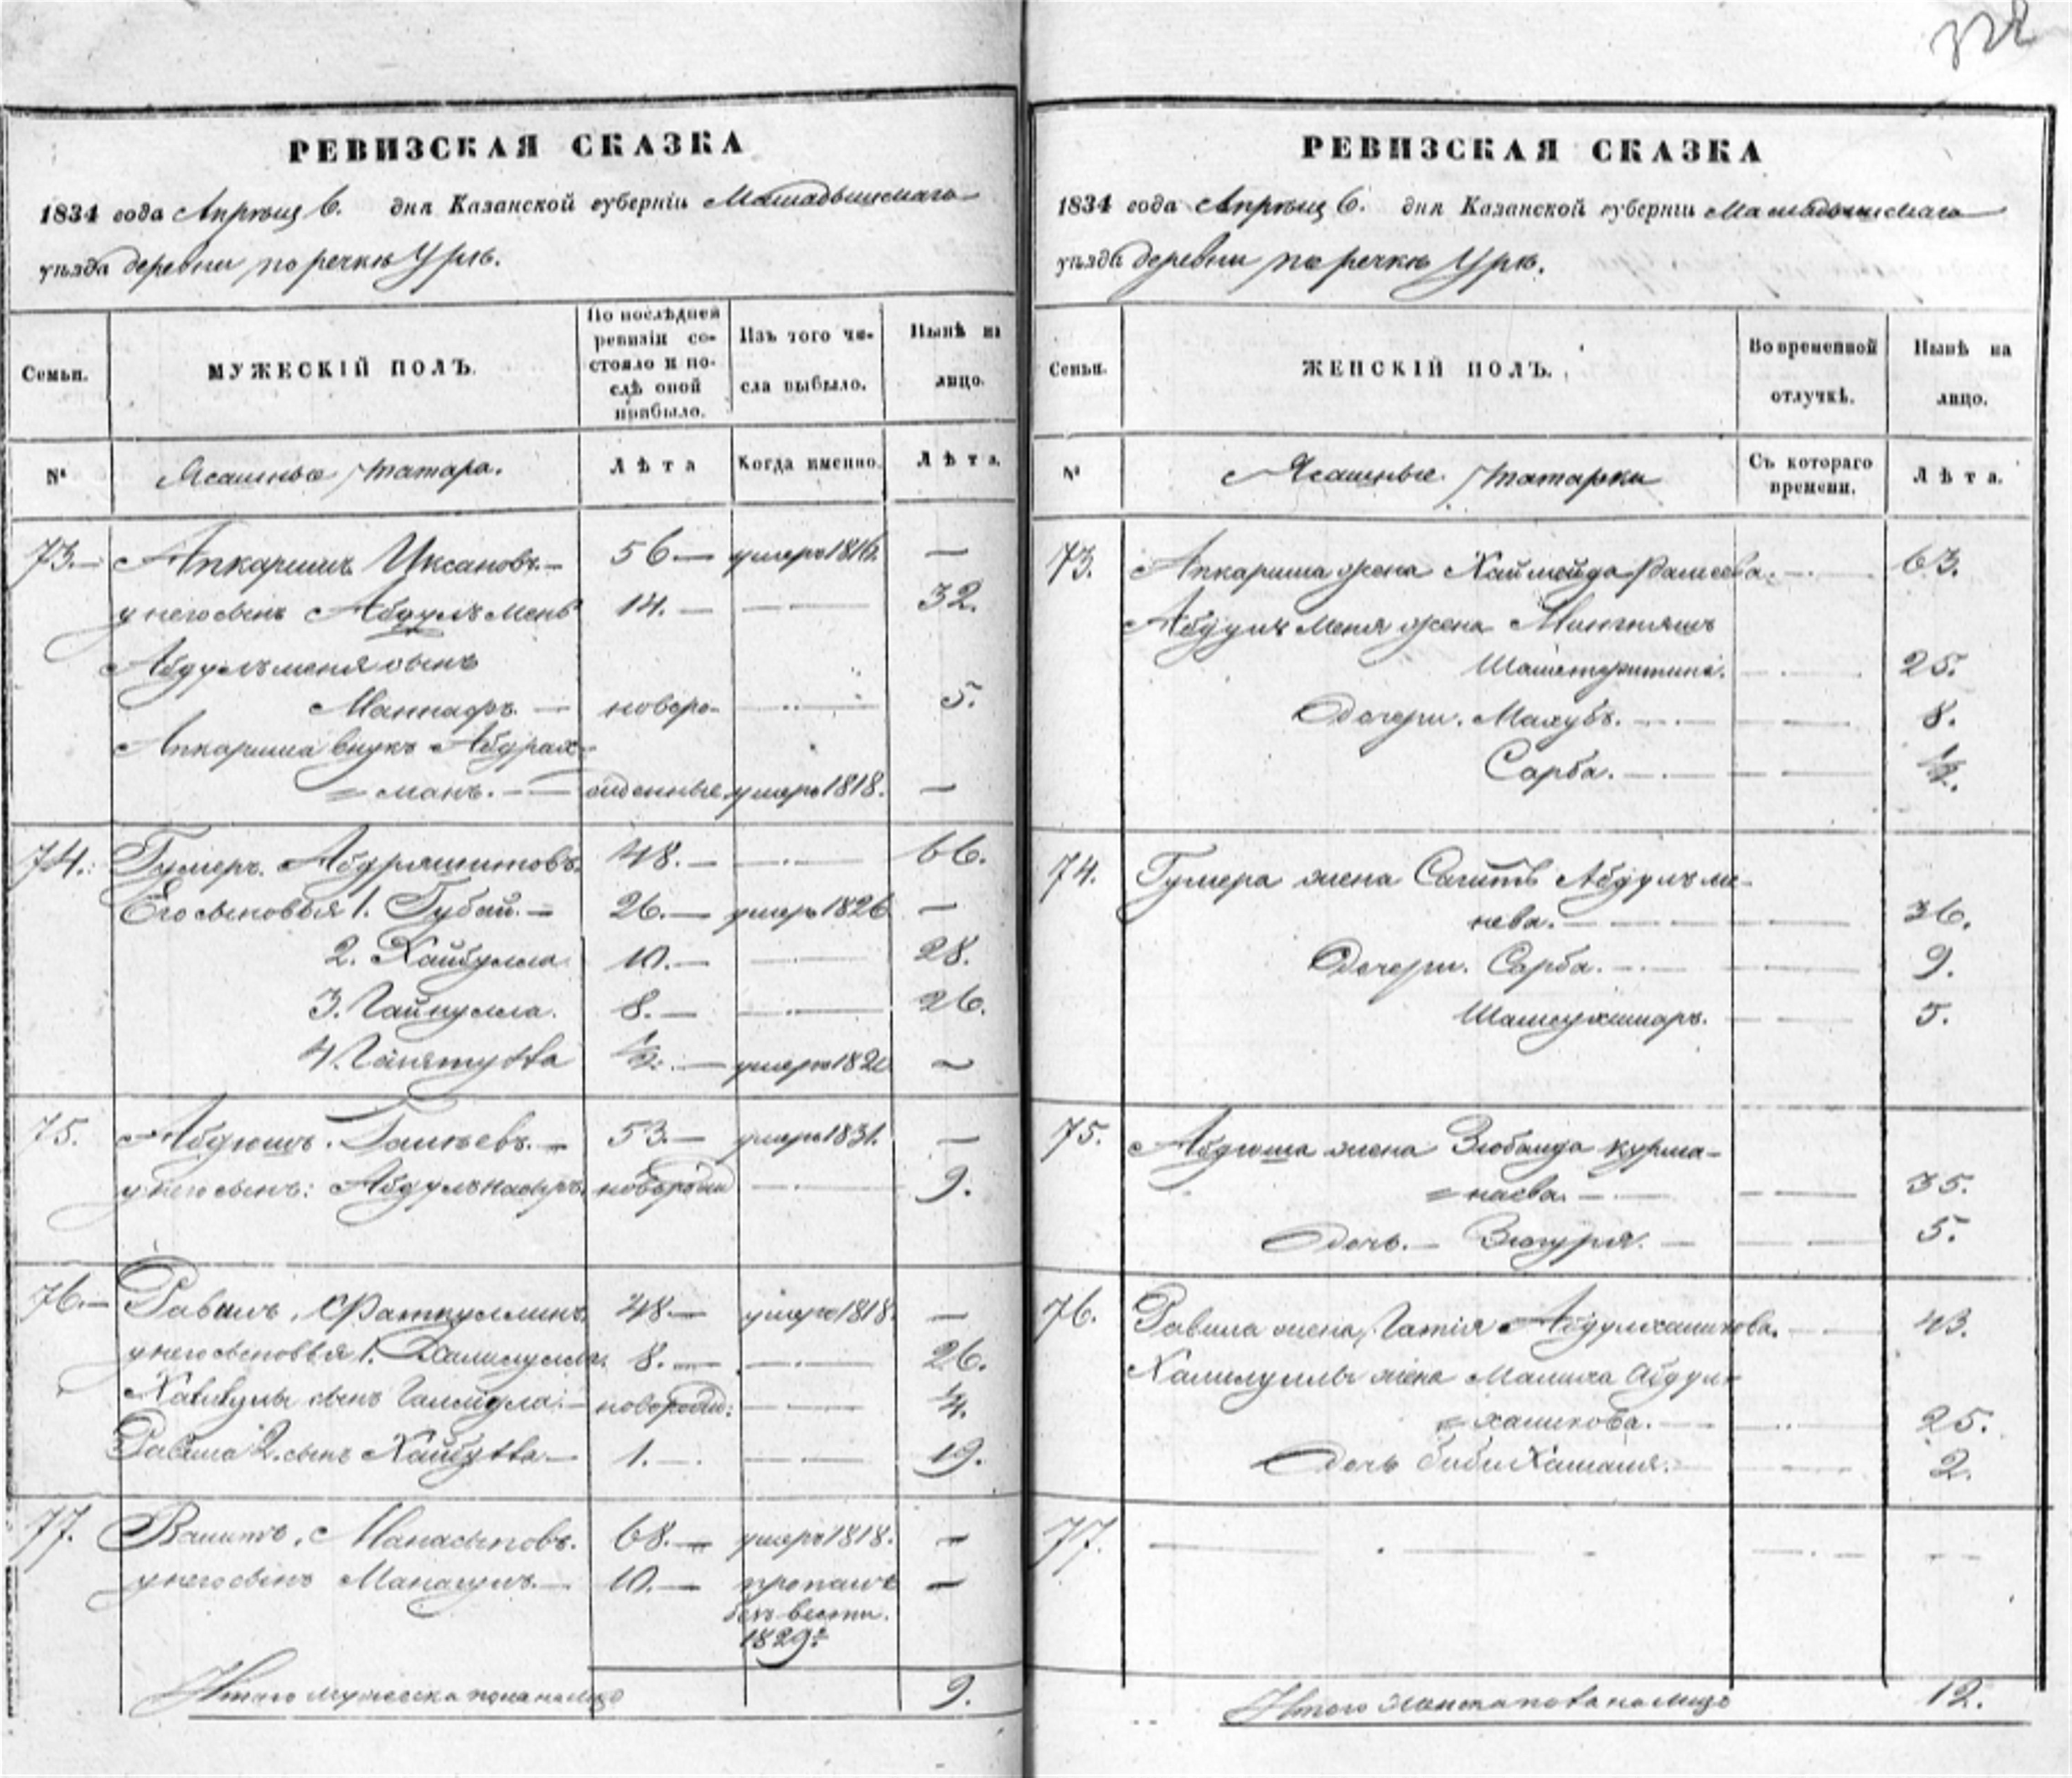 322
РЕВИЗСКАЯ СКАЗКА
1834 года Апрѣля 6. дня Казанской губерніи Мамадышскаго
уѣзда деревни по речкѣ Урѣ.
Семьи.
МУЖЕСКІЙ ПОЛЪ.
По послѣдней ревизіи состояло и послѣ оной прибыло.
Изъ того числа выбыло.
Нынѣ на лицо.
№
Ясашные татара.
Лѣта
Когда именно.
Лѣта.
73.— Апкаримъ Иксановъ.— 56.— умеръ 1816. —
у него сынъ Абдулъменъ 14.— — 32.
Абдулъменя сынъ
Маннафъ.— новоро- — 5.
Апкарима внукъ Абдрах-
=манъ.— жденные умеръ 1818. —
74. Гумеръ Абдряшитовъ. 48.— — 66.
Его сыновья 1. Губай.— 26.— умеръ 1826 —
2. Хайбулла 10.— — 28.
3. Гайнулла. 8.— — 26.
4. Гинятулла ½.— умеръ 182 —
75. Абдюшъ. 53.— умеръ 1831. —
у него сынъ: Абдулнафиръ новорожд — 9.
76.— Равилъ Фаткуллинъ 48.— умеръ 1818. —
у него сыновья 1. Халилулла. 8.— — 26.
сынъ новорожд: — ¼.
Равила 2. сынъ Хайбулла.— 1.— — 19.
77. Вахитъ Манасыповъ. 68.— умеръ 1818. —
у него сынъ 10.— пропалъ —
безъ вести.
1829.
Итого мужеска пола на лицо 9.
РЕВИЗСКАЯ СКАЗКА
1834 года Апрѣля 6. дня Казанской губерніи Мамадышскаго
уѣзда деревни по речкѣ Урѣ.
Семьи.
ЖЕНСКІЙ ПОЛЪ.
Во временной отлучкѣ.
Нынѣ на лицо.
№
Ясашные татарки
Съ котораго времени.
Лѣта.
73. Апкарима жена — 63.
Абдулъ меня жена
— 25.
Дочери. Махубъ.— — 8.
Сарба.— — ½.
74. Гумера жена Сагитъ Абдулъме-
нева.— — 36.
Дочери. Сарба.— — 9.
— 5.
75. Абдюша жена Зюбаида Курма-
=наева.— — 35.
Дочь.— Зюгуря.— — 5.
76. Равила жена Гатія Абдулхаликова.— 43.
Халилуллы жена Малиха Абдул-
=халикова.— — 25.
Дочь Биби — 2.
77. — — —
Итого женска пола на лицо 12.